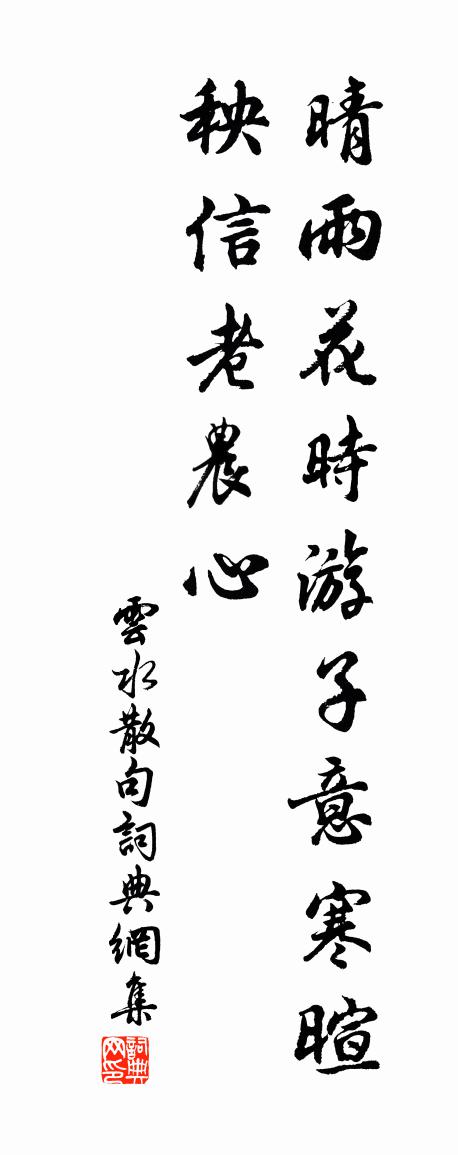 晴雨花時游子意寒暄
秧信老農心
雲水散句詞典網集
詞典网印